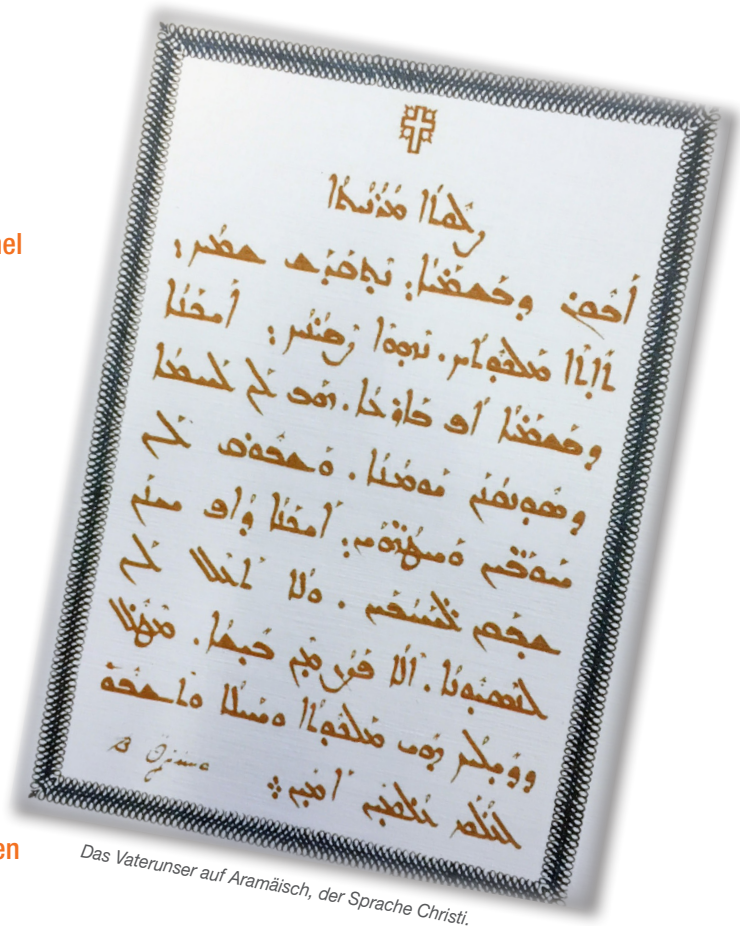 ܨܠܘܬܐ ܡܪܢܝܬܐ
ܐܒܘܢ ܕܒܫܡܝܐ܆ ܢܬܩܕܫ ܫܡܟ܆
ܬܐܬܐ ܡܠܟܘܬܟ. ܢܗܘܐ ܨܒܝܢܟ܆ ܐܝܟܢܐ
ܕܒܫܡܝܐ ܐܦ ܒܐܪܥܐ. ܗܒ ܠܢ ܠܚܡܐ
ܕܣܘܢܩܢܢ ܝܘܡܢܐ. ܘܫܒܘܩ ܠܢ
ܚܘܒܝܢ ܘܚܛܗܝܢ܆ ܐܝܟܢܐ ܕܐܦ ܚܢܢ
ܫܒܩܢ ܠܚܝܒܝܢ. ܘܠܐ ܬܥܠ ܠܢ
ܠܢܣܝܘܢܐ. ܐܠܐ ܦܨܢ ܡܢ ܒܝܫܐ. ܡܛܠ
ܕܕܝܠܟ ܗܝ ܡܠܟܘܬܐ ܘܚܝܠܐ ܘܬܫܒܘܚܬܐ
ܠܥܠܡ ܥܠܡܝܢ ܐܡܝܢ܀
Das Vaterunser auf Aramäisch, der Sprache Christi.